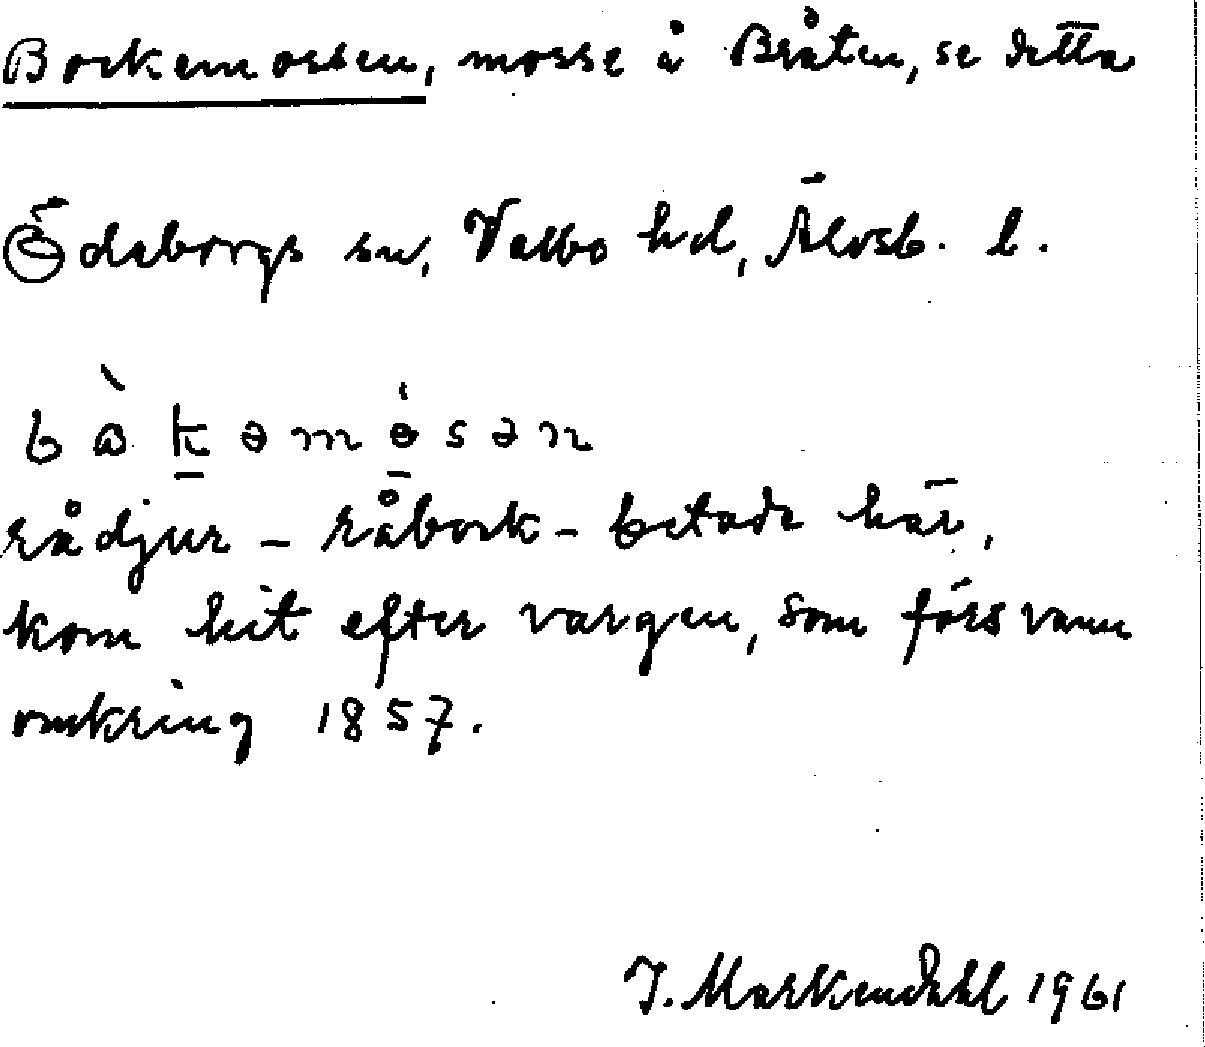 Bockemossen, mosse å Bråten, se detta
Ödeborgs sn, Valbo hd, Älvsb. l.
rådjur - råbock - betade här,
kom hit efter vargen, som försvann
omkring 1857.
J. Markendahl 1961